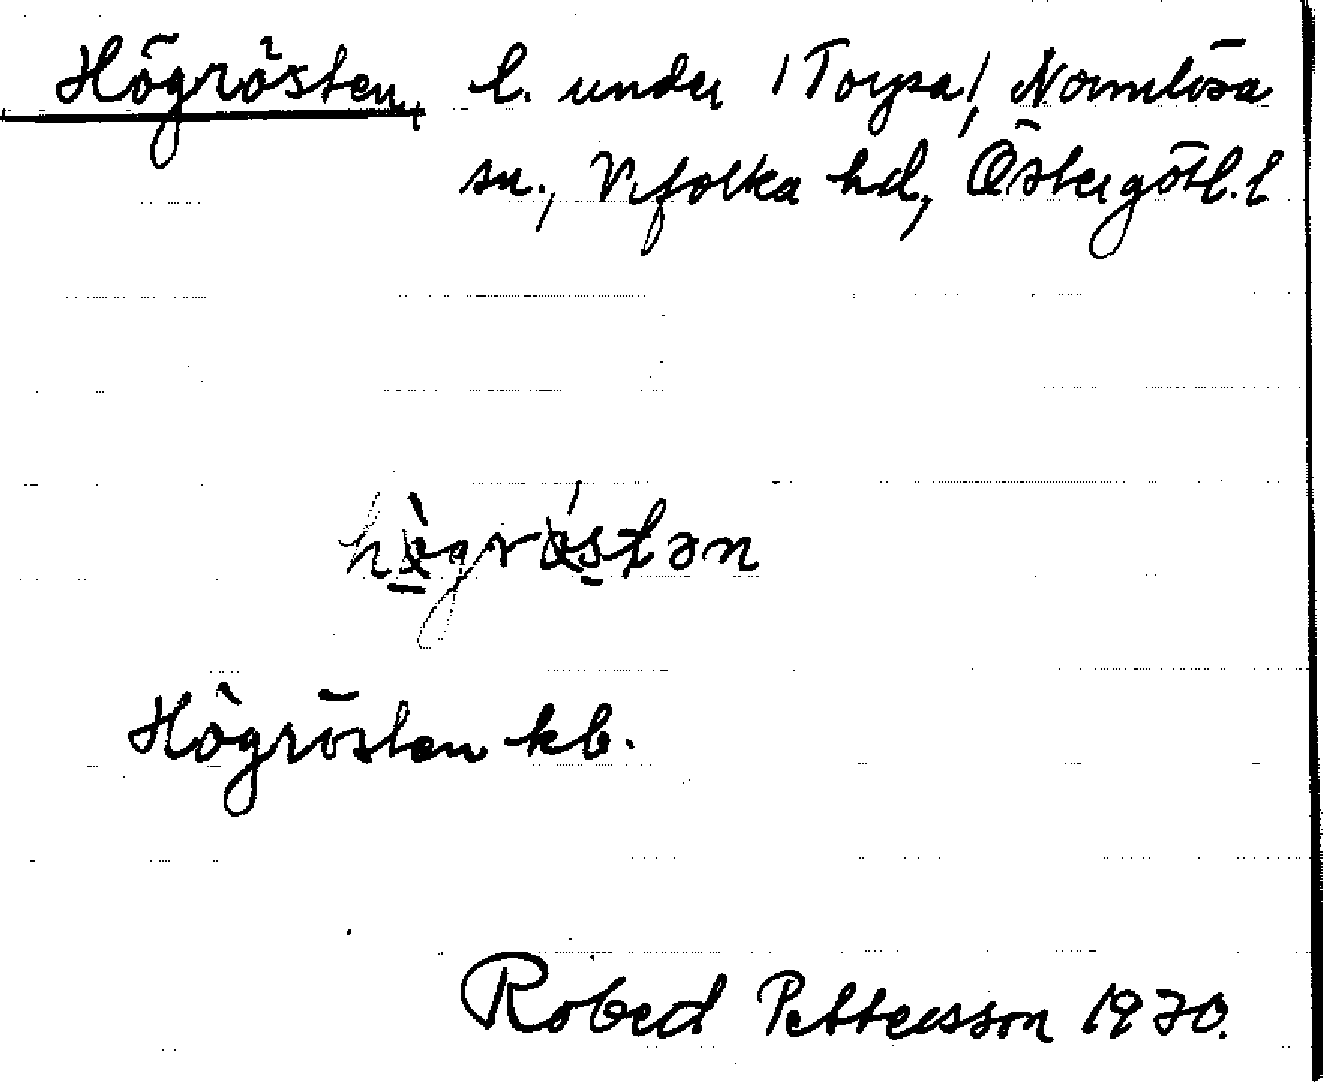 Högrösten, l. under /Torpa/, Normlösa
sn., Vifolka hd, Östergötl. l
hø̀grǿstən
Högrösten kb.
Robert Pettersson 1930.